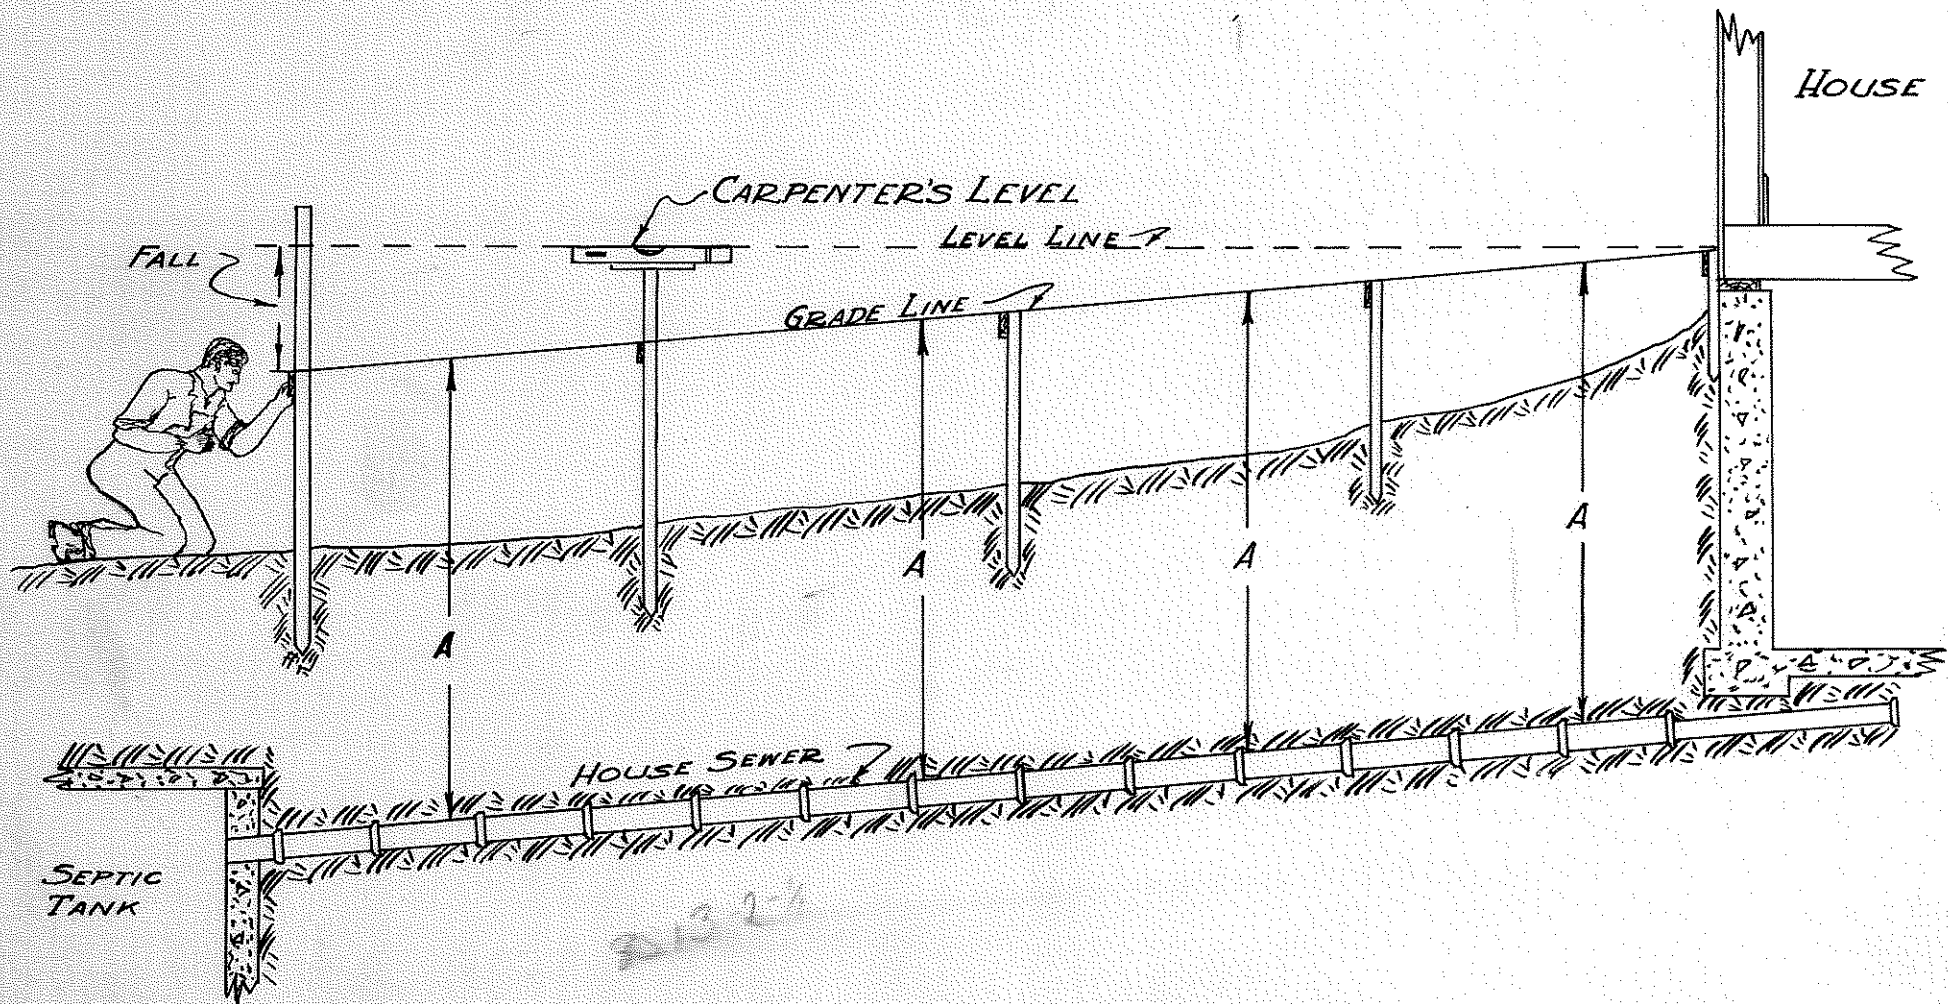 HOUSE
CARPENTER'S LEVEL
LEVEL LINE
FALL
GRADE LINE
A
A
A
A
HOUSE SEWER
SEPTIC
TANK